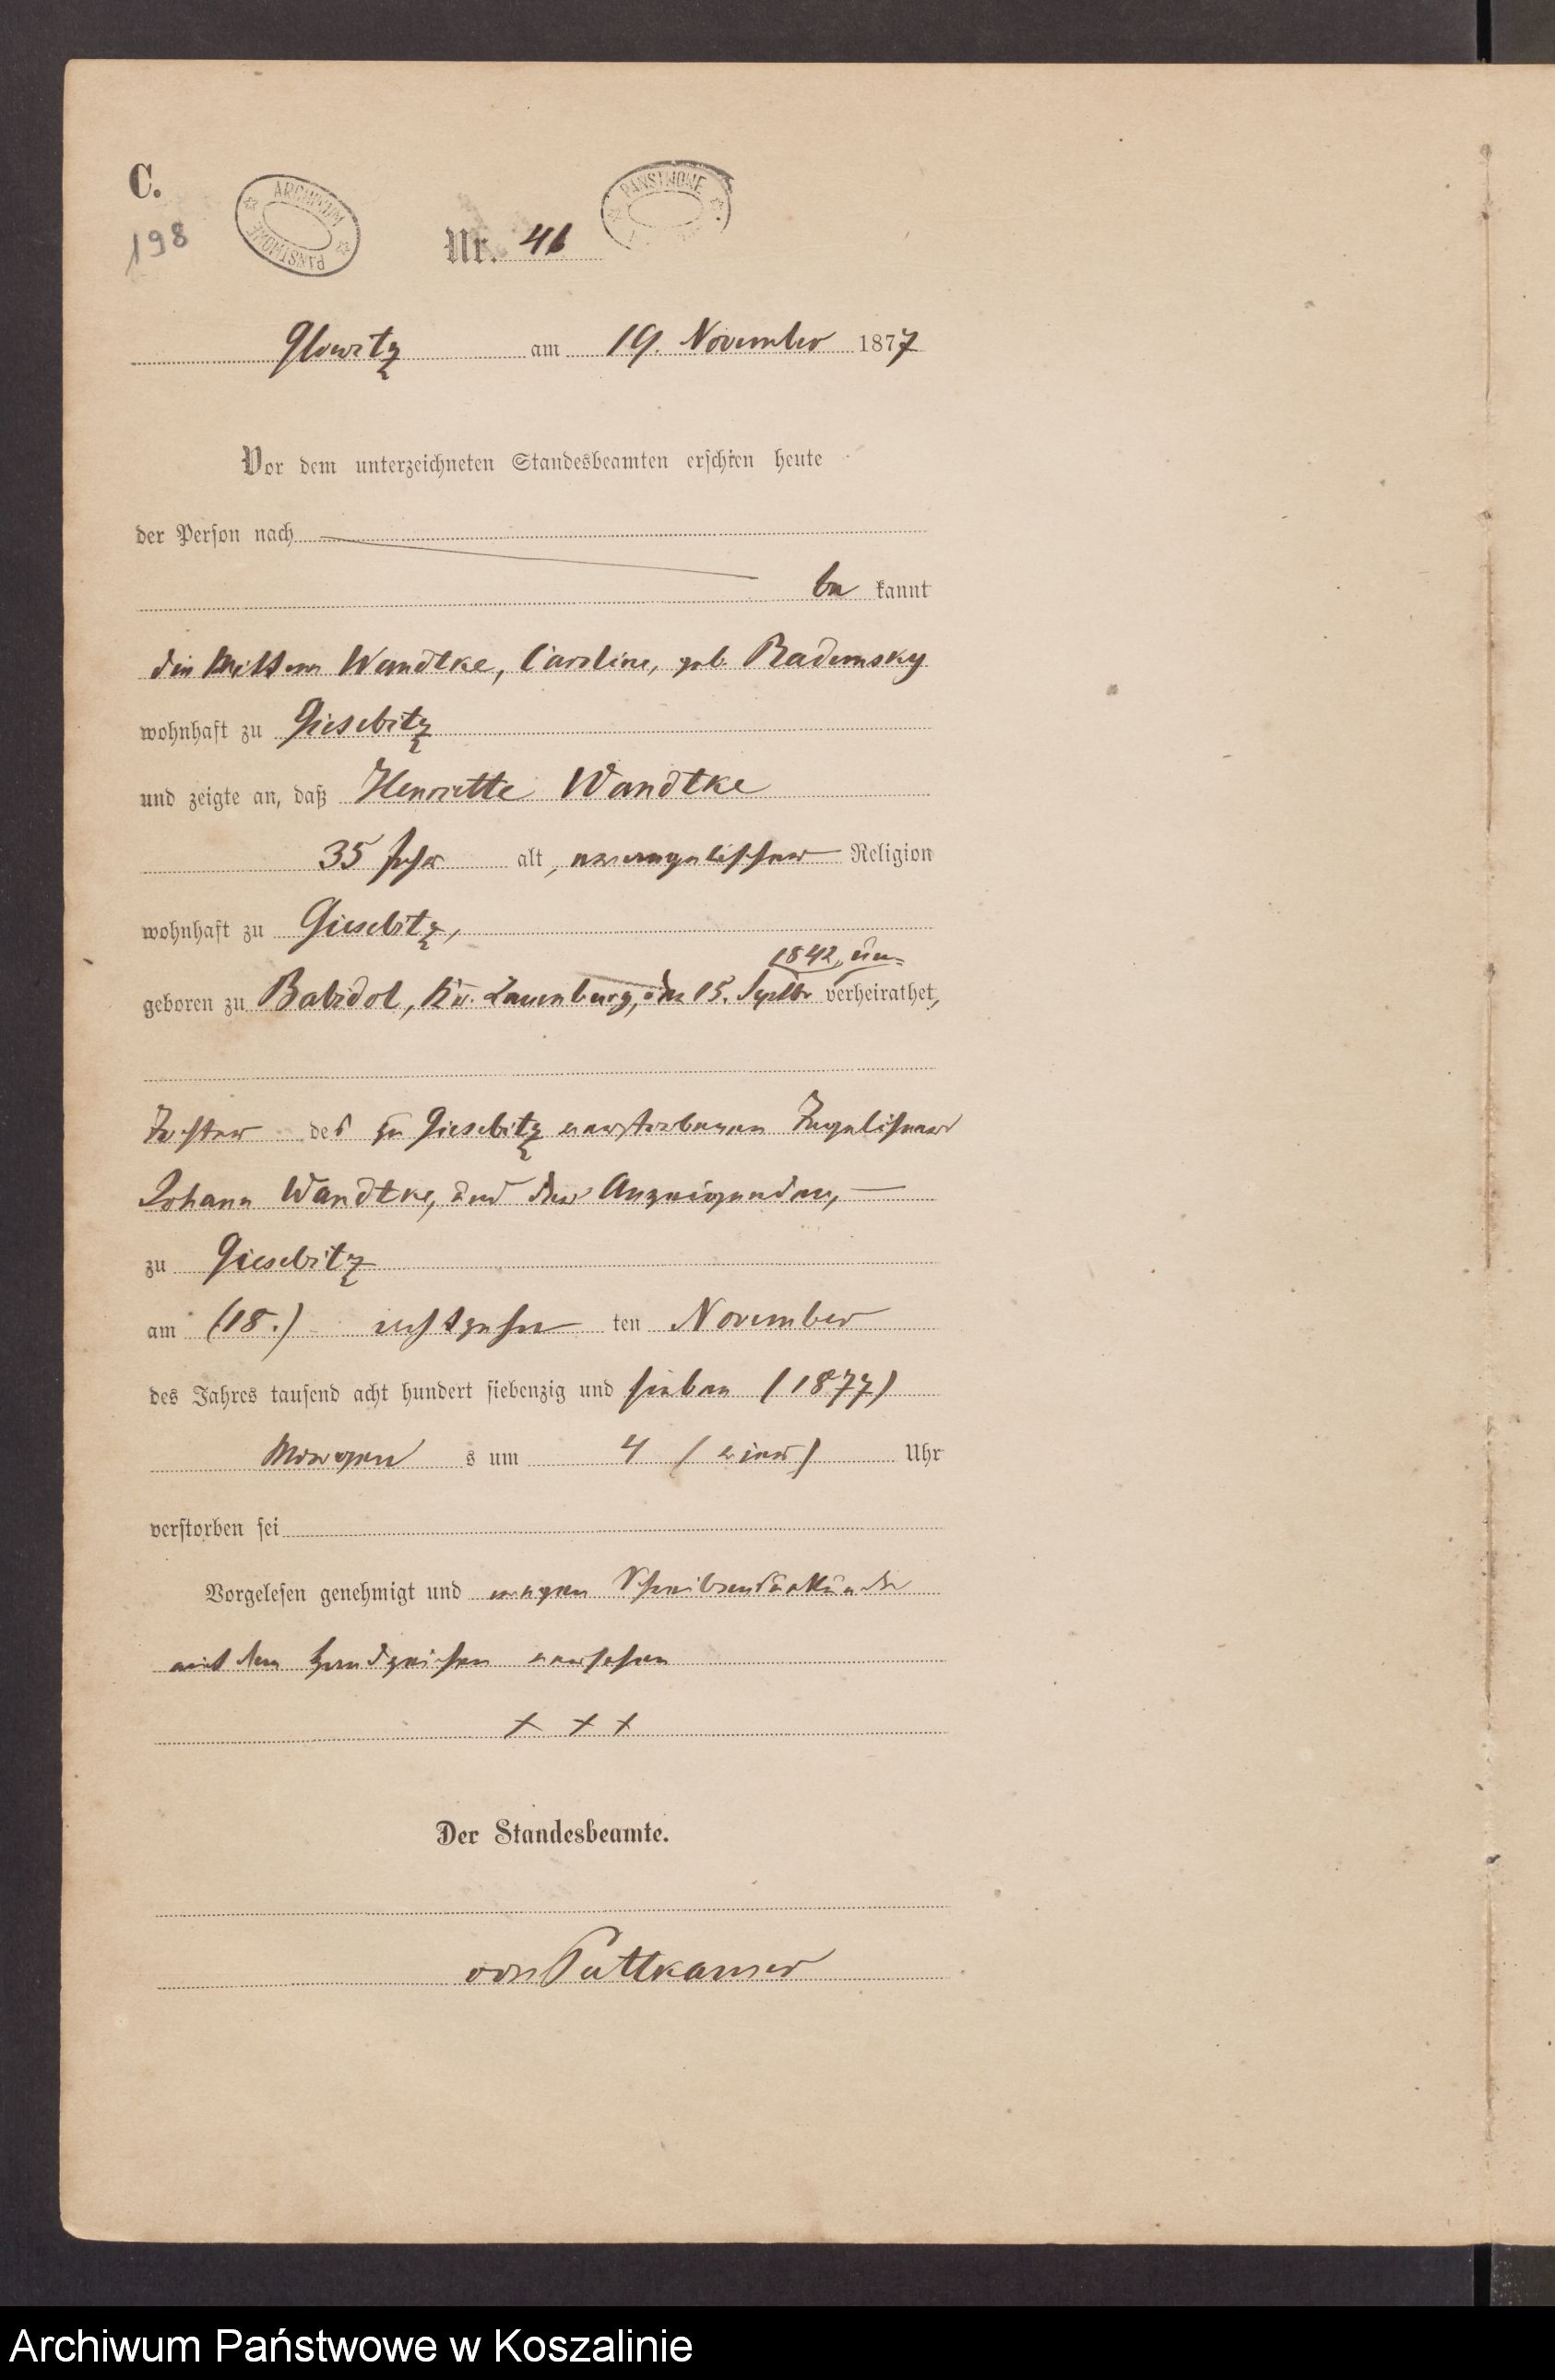 C.
198
ARCHIWUM PAŃSTWOWE
PAŃSTWOWE
Nr. 46
Glowitz am 19. November 1877
Vor dem unterzeichneten Standesbeamten erschien heute
der Person nach
be kannt
die Wittwe Wandtke, Caroline, geb. Rademsky
wohnhaft zu Giesebitz
und zeigte an, daß Henriette Wandtke
35 Jahr alt, evangelischer Religion
wohnhaft zu Giesebitz,
1842, un=
geboren zu Babidol, Kr. Lauenburg, den 15. Septbr verheirathet,
Tochter des zu Giesebitz verstorbenen
Johann Wandtke, und der Anzeigenden,
zu Giesebitz
am (18.) achtzehn ten November
des Jahres tausend acht hundert siebenzig und sieben (1877)
Morgen s um 4 (vier) Uhr
verstorben sei
Vorgelesen genehmigt und wegen Schreibensunkunde
mit dem Handzeichen versehen
+ + +
Der Standesbeamte.
von Puttkamer
Archiwum Państwowe w Koszalinie